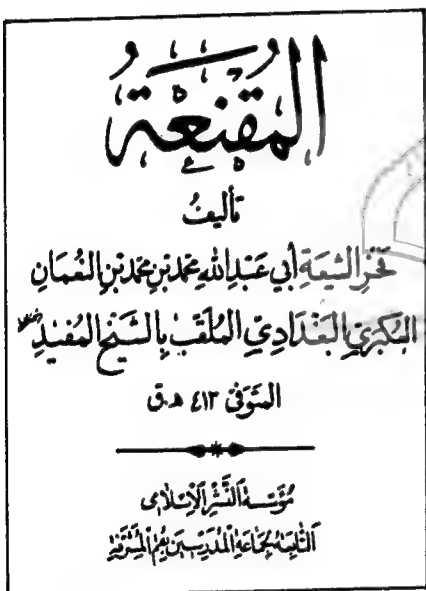 المُقنِعَة
تأليفُ
فَخرِ الشيعَةِ أبي عَبدِ اللهِ مُحمّد بنِ مُحمّد بنِ النُعمَانِ
العُكبَرِيّ البَغدَادِيّ المُلَقَّب بِالشَّيخِ المُفيدِ
المتَوَفّىٰ ٤١٣ هـ.ق
مُؤسَّسَةُ النَّشرِ الإسلامِي
التّابِعَةُ لِجَماعَةِ المُدَرِّسينَ بِقُم المُشَرَّفَةِ